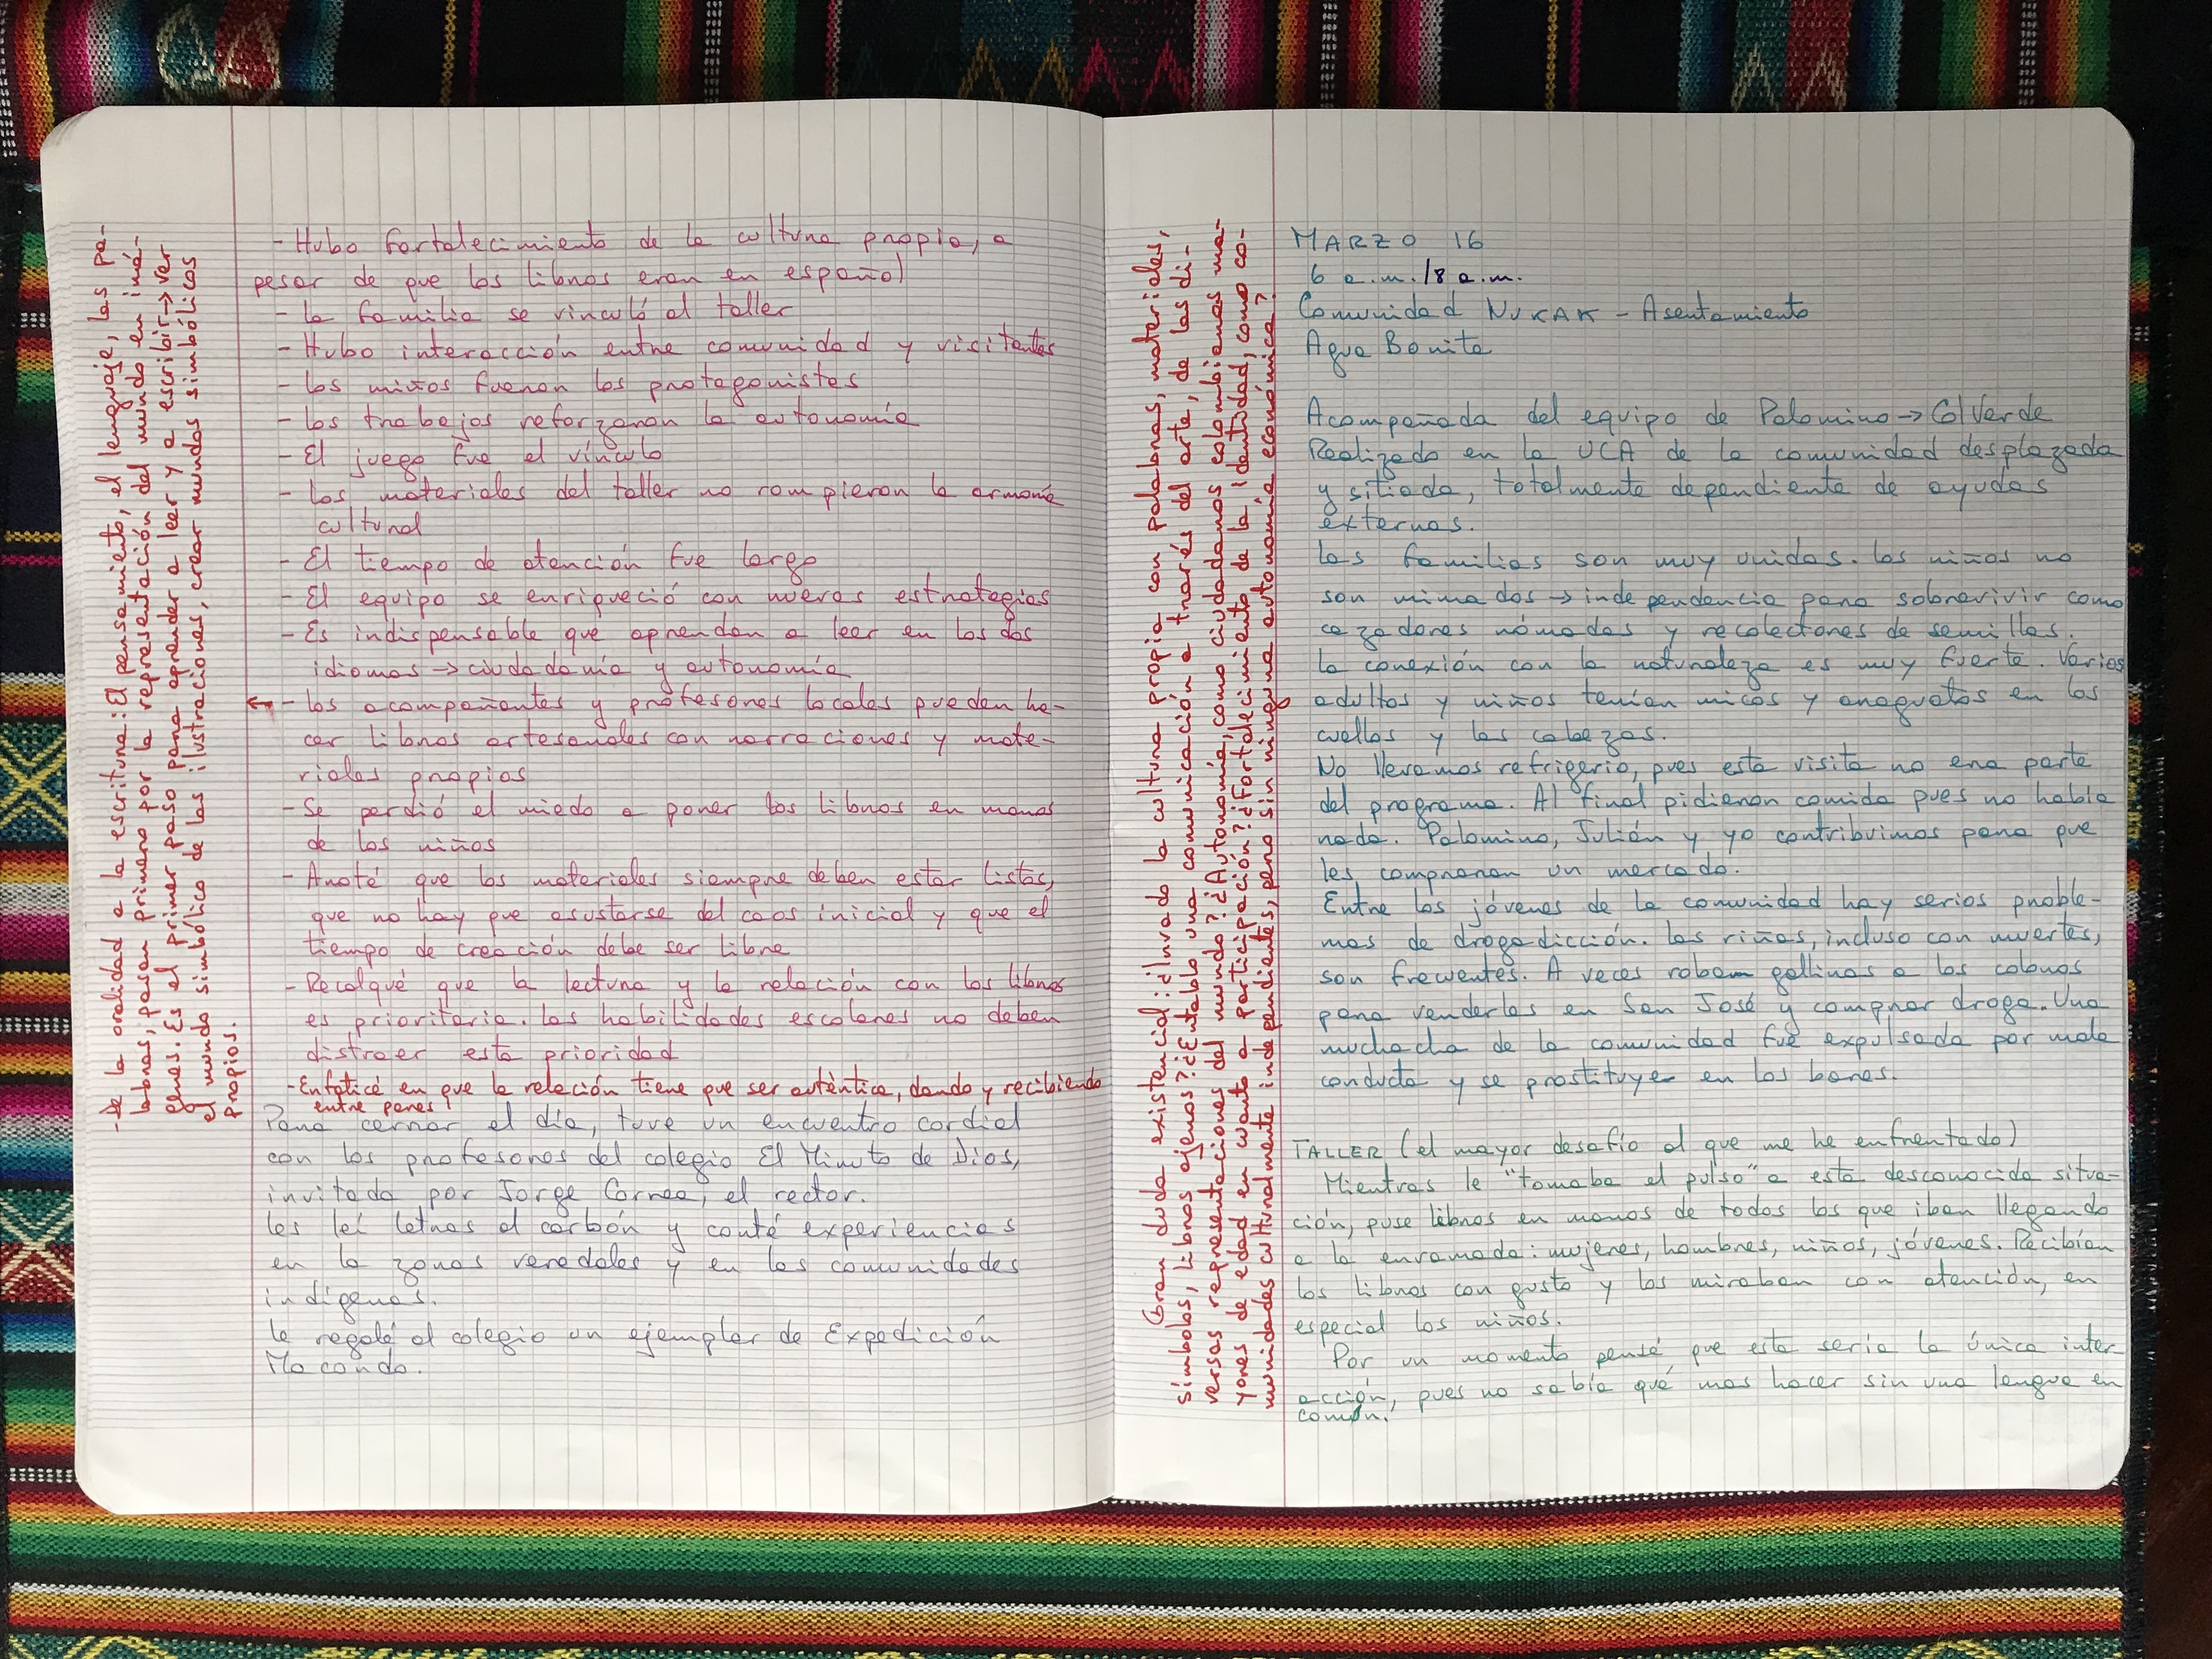 - Hubo fortalecimiento de la cultura propia, a
pesar de que los libros eran en español
- La familia se vinculó al taller
- Hubo interacción entre comunidad y visitantes
- Los niños fueron los protagonistas
- Los trabajos reforzaron la autonomía
- El juego fue el vínculo
- Los materiales del taller no rompieron la armonía
cultural
- El tiempo de atención fue largo
- El equipo se enriqueció con nuevas estrategias
- Es indispensable que aprendan a leer en los dos
idiomas → ciudadanía y autonomía
← - Los acompañantes y profesores locales pueden ha-
cer libros artesanales con narraciones y mate-
riales propios
- Se perdió el miedo a poner los libros en manos
de los niños
- Anoté que los materiales siempre deben estar listos,
que no hay que asustarse del caos inicial y que el
tiempo de creación debe ser libre
- Recalqué que la lectura y la relación con los libros
es prioritaria. Las habilidades escolares no deben
distraer esta prioridad
- Enfaticé en que la relación tiene que ser auténtica, dando y recibiendo
entre pares
Para cerrar el día, tuve un encuentro cordial
con los profesores del colegio El Minuto de Dios,
invitada por Jorge Correa, el rector.
Les leí Letras al carbón y conté experiencias
en la zonas veredales y en las comunidades
indígenas.
Le regalé al colegio un ejemplar de Expedición
Macondo.
- De la oralidad a la escritura: El pensamiento, el lenguaje, las pa-
labras, pasan primero por la representación del mundo en imá-
genes. Es el primer paso para aprender a leer y a escribir → ver
el mundo simbólico de las ilustraciones, crear mundos simbólicos
propios.
Gran duda existencial: ¿Invado la cultura propia con palabras, materiales,
símbolos, libros ajenos? ¿Entablo una comunicación a través del arte, de las di-
versas representaciones del mundo? ¿Autonomía, como ciudadanos colombianos ma-
yores de edad en cuanto a participación? ¿Fortalecimiento de la identidad, como co-
munidades culturalmente independientes, pero sin ninguna autonomía económica?
MARZO 16
6 a.m./8 a.m.
Comunidad NUKAK - Asentamiento
Agua Bonita
Acompañada del equipo de Palomino → Col Verde
Realizado en la UCA de la comunidad desplazada
y sitiada, totalmente dependiente de ayudas
externas.
Las familias son muy unidas. Los niños no
son mimados → independencia para sobrevivir como
cazadores nómadas y recolectores de semillas.
La conexión con la naturaleza es muy fuerte. Varios
adultos y niños tenían micos y araguatos en los
cuellos y las cabezas.
No llevamos refrigerio, pues esta visita no era parte
del programa. Al final pidieron comida pues no había
nada. Palomino, Julián y yo contribuimos para que
les compraran un mercado.
Entre los jóvenes de la comunidad hay serios proble-
mas de drogadicción. Las riñas, incluso con muertes,
son frecuentes. A veces roban gallinas a los colonos
para venderlas en San José y comprar droga. Una
muchacha de la comunidad fue expulsada por mala
conducta y se prostituye en los bares.
TALLER (el mayor desafío al que me he enfrentado)
Mientras le "tomaba el pulso" a esta desconocida situa-
ción, puse libros en manos de todos los que iban llegando
a la enramada: mujeres, hombres, niños, jóvenes. Recibían
los libros con gusto y los miraban con atención, en
especial los niños.
Por un momento pensé que esta sería la única inter-
acción, pues no sabía qué mas hacer sin una lengua en
común.